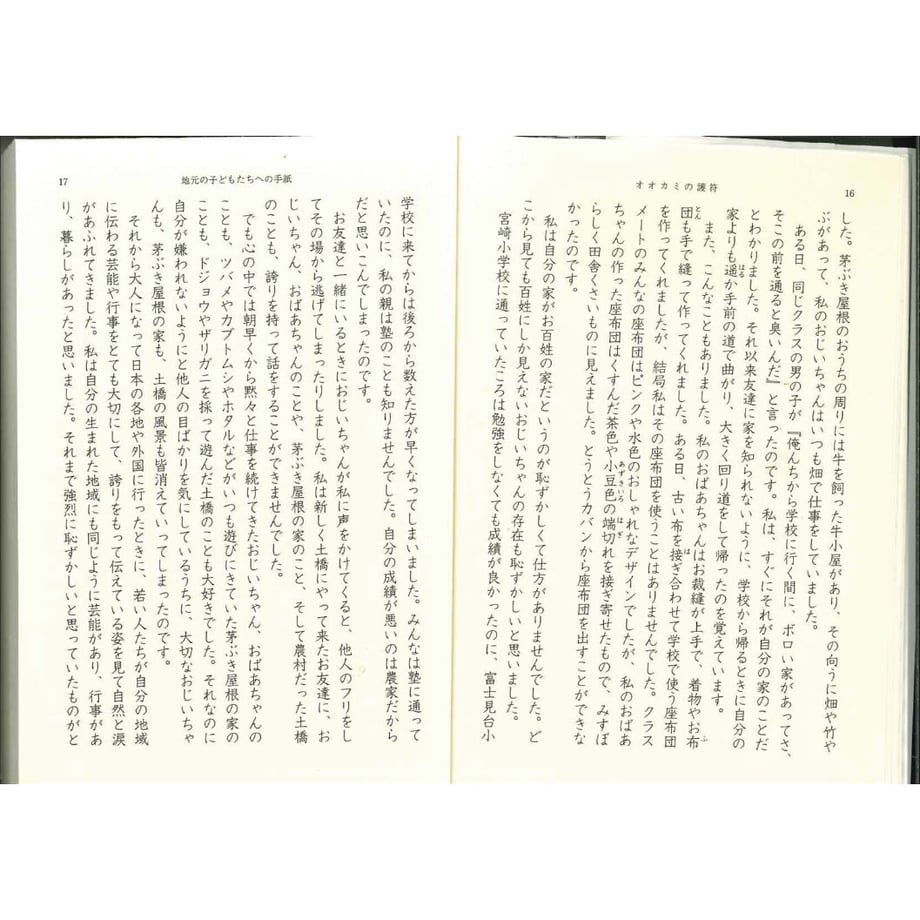 16
オオカミの護符
した。茅ぶき屋根のおうちの周りには牛を飼った牛小屋があり、その向うに畑や竹や
ぶがあって、私のおじいちゃんはいつも畑で仕事をしていました。
ある日、同じクラスの男の子が『俺んちから学校に行く間に、ボロい家があってさ、
そこの前を通ると臭いんだ』と言ったのです。私は、すぐにそれが自分の家のことだ
とわかりました。それ以来友達に家を知られないように、学校から帰るときに自分の
家よりも遥か手前の道で曲がり、大きく回り道をして帰ったのを覚えています。
また、こんなこともありました。私のおばあちゃんはお裁縫が上手で、着物やお布
団も手で縫って作ってくれました。ある日、古い布を接ぎ合わせて学校で使う座布団
を作ってくれましたが、結局私はその座布団を使うことはありませんでした。クラス
メートのみんなの座布団はピンクや水色のおしゃれなデザインでしたが、私のおばあ
ちゃんの作った座布団はくすんだ茶色や小豆色の端切れを接ぎ寄せたもので、みすぼ
らしく田舎くさいものに見えました。とうとうカバンから座布団を出すことができな
かったのです。
私は自分の家がお百姓の家だというのが恥ずかしくて仕方がありませんでした。ど
こから見ても百姓にしか見えないおじいちゃんの存在も恥ずかしいと思いました。
宮崎小学校に通っていたころは勉強をしなくても成績が良かったのに、富士見台小
17
地元の子どもたちへの手紙
学校に来てからは後ろから数えた方が早くなってしまいました。みんなは塾に通って
いたのに、私の親は塾のことも知りませんでした。自分の成績が悪いのは農家だから
だと思いこんでしまったのです。
お友達と一緒にいるときにおじいちゃんが私に声をかけてくると、他人のフリをし
てその場から逃げてしまったりしました。私は新しく土橋にやって来たお友達に、お
じいちゃん、おばあちゃんのことや、茅ぶき屋根の家のこと、そして農村だった土橋
のことも、誇りを持って話をすることができませんでした。
でも心の中では朝早くから黙々と仕事を続けてきたおじいちゃん、おばあちゃんの
ことも、ツバメやカブトムシやホタルなどがいつも遊びにきていた茅ぶき屋根の家の
ことも、ドジョウやザリガニを採って遊んだ土橋のことも大好きでした。それなのに
自分が嫌われないようにと他人の目ばかりを気にしているうちに、大切なおじいちゃ
んも、茅ぶき屋根の家も、土橋の風景も皆消えていってしまったのです。
それから大人になって日本の各地や外国に行ったときに、若い人たちが自分の地域
に伝わる芸能や行事をとても大切にして、誇りをもって伝えている姿を見て自然と涙
があふれてきました。私は自分の生まれた地域にも同じように芸能があり、行事があ
り、暮らしがあったと思いました。それまで強烈に恥ずかしいと思っていたものがと